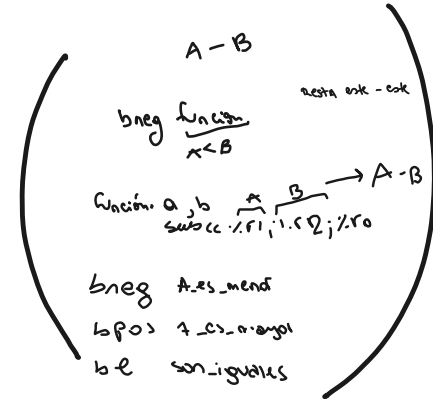 A - B
resta este - este
bneg función
A<B
A B → A - B
función: a, b
subcc %r1, %r2, %r0
bneg A_es_menor
bpos A_es_mayor
be son_iguales